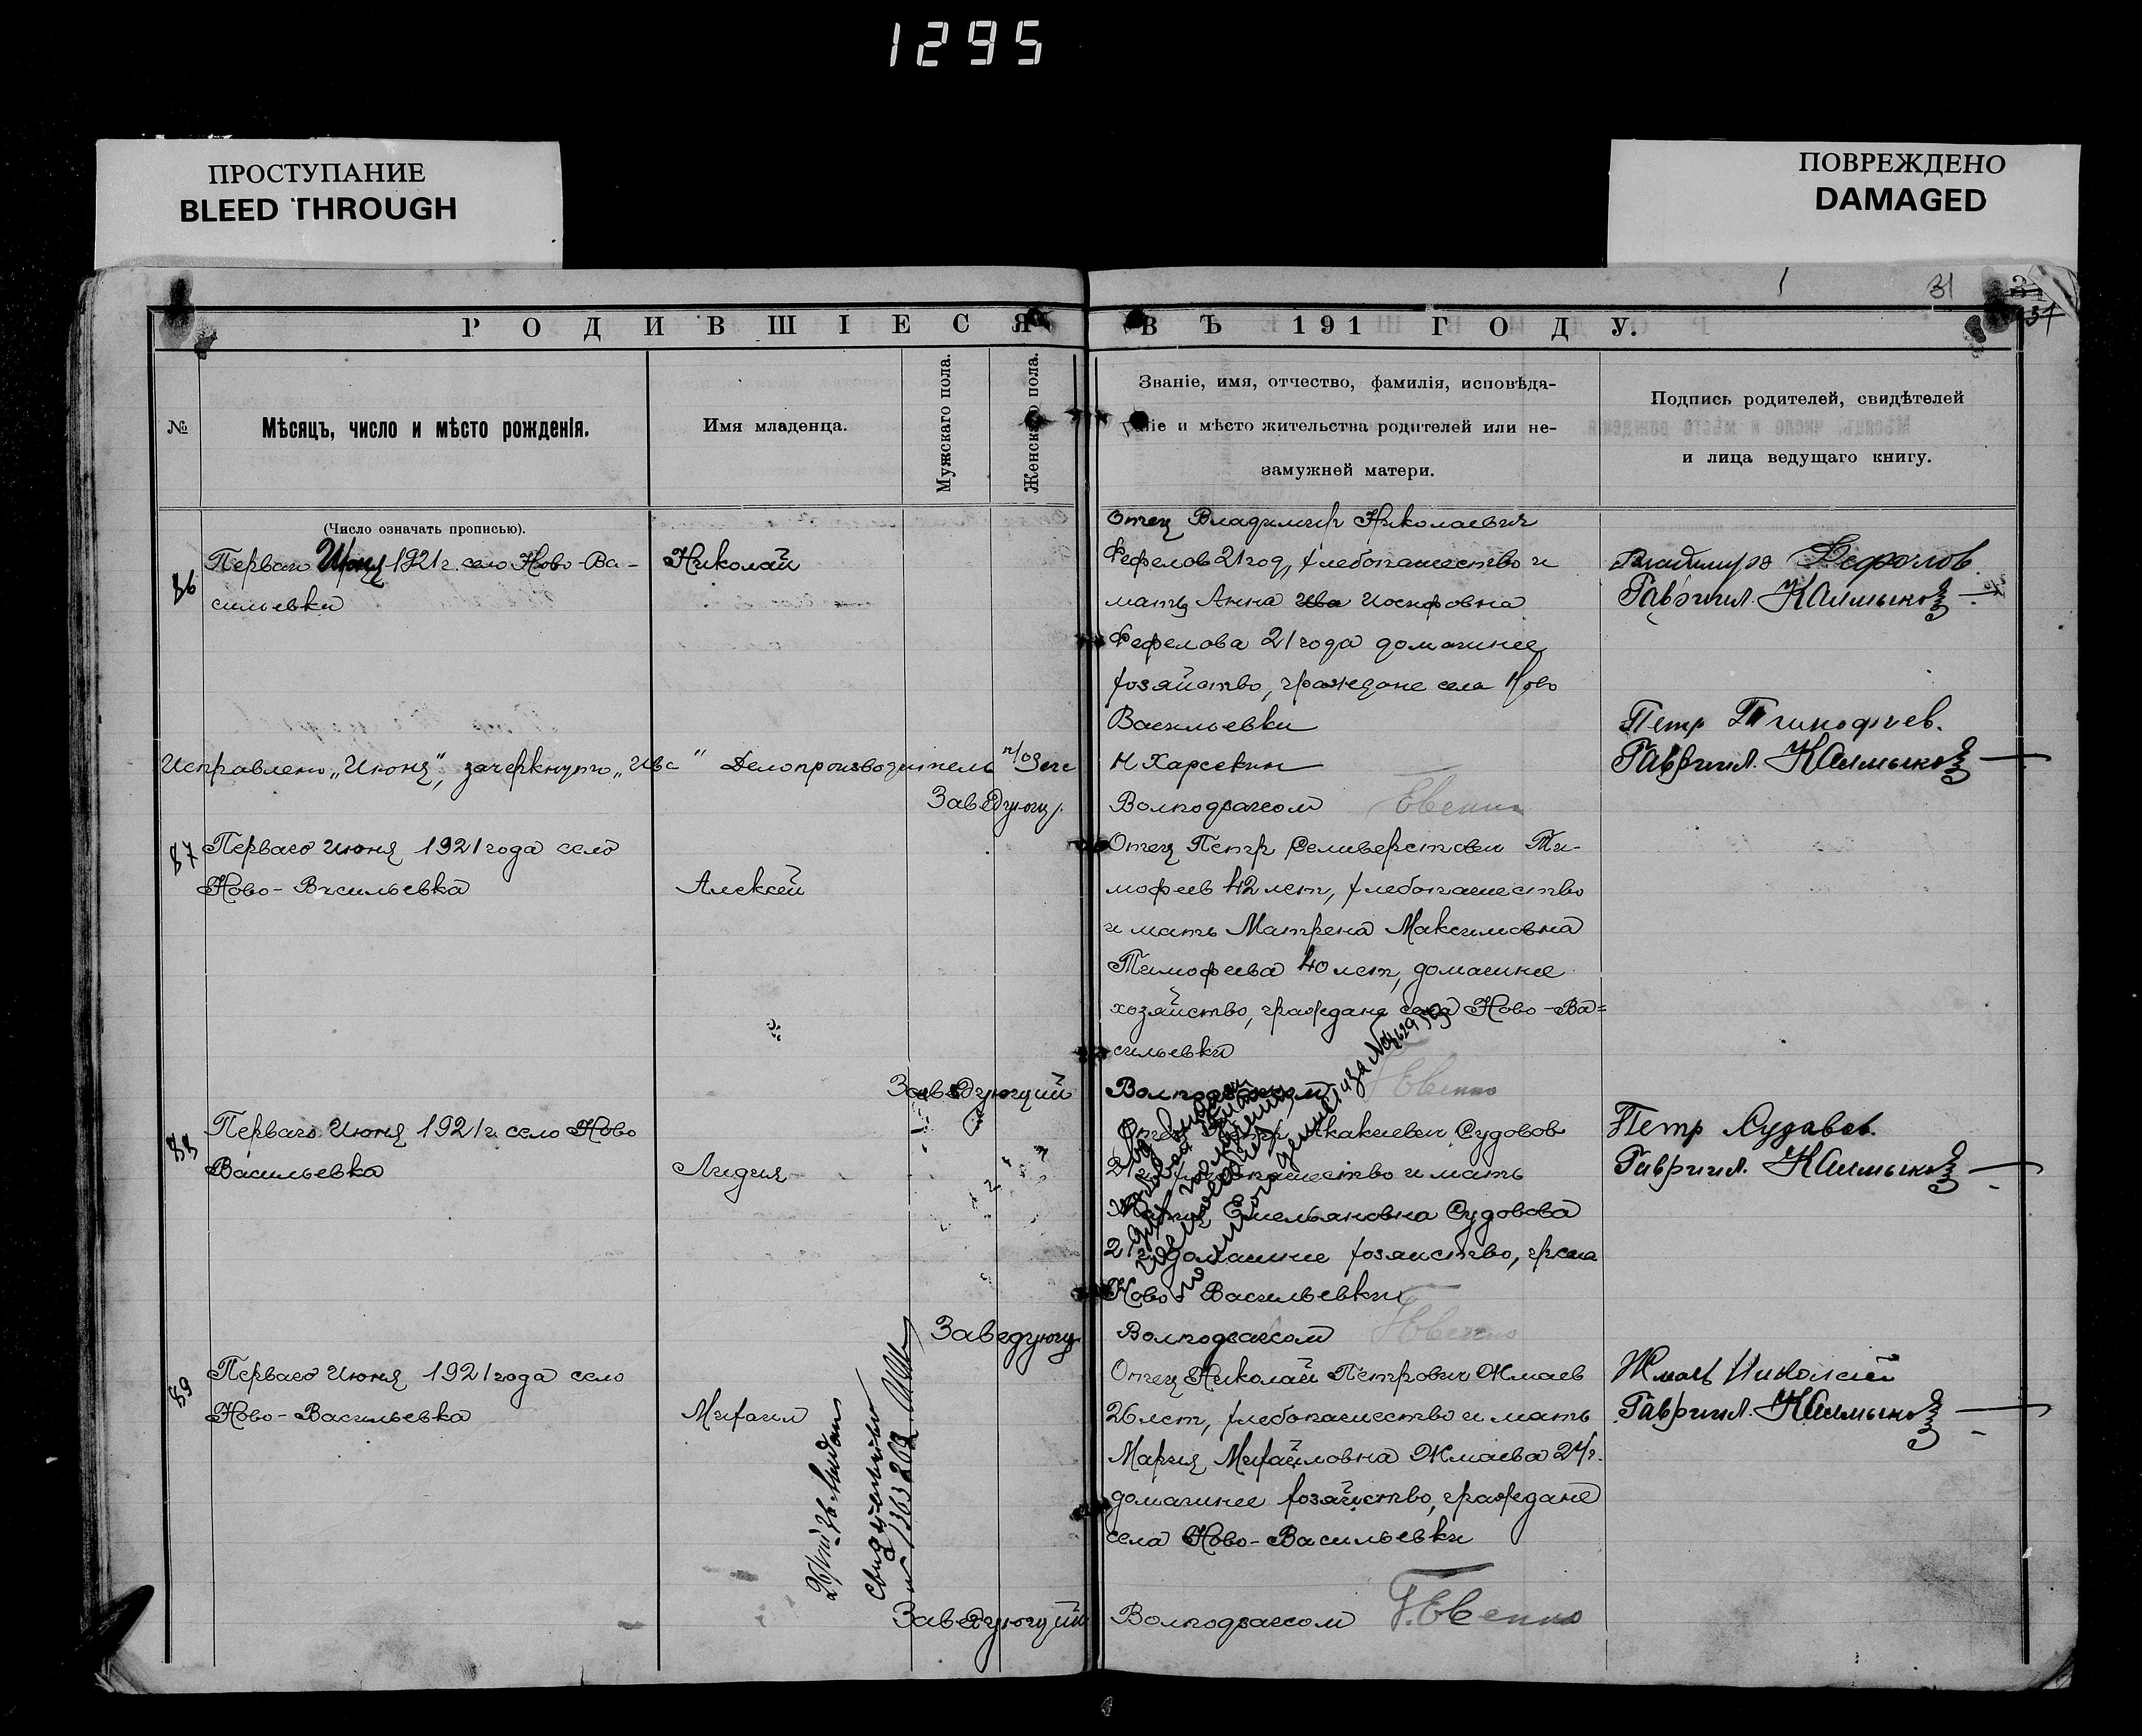 1295
ПРОСТУПАНИЕ
BLEED THROUGH
ПОВРЕЖДЕНО
DAMAGED
31
РОДИВШІЕСЯ
ВЪ 191 ГОДУ.
№
Мѣсяцъ, число и мѣсто рожденія.
Имя младенца.
Мужскаго пола.
Женскаго пола.
Званіе, имя, отчество, фамилія, исповѣда-
ніе и мѣсто жительства родителей или не-
замужней матери.
Подпись родителей, свидѣтелей
и лица ведущаго книгу.
(Число означать прописью).
86
Перваго Июня 1921 г. село Ново-Ва-
сильевка
Николай
Отец Владимир Николаевич
Фефелов 21 год, хлебопашество и
мать Анна Ива Иосифовна
Фефелова 21 года домашнее
хозяйство, граждане села Ново
Васильевки
Владимиръ Фефолов.
Гавриил. Калмыков
Исправлено „Июня", зачеркнуто „Ива" Делопроизводитель п/о Загс
Н Харсекин
Заведующ. Волподзагсом Евенко
Петр Тимофиев.
Гавриил. Калмыков
87
Перваго Июня 1921 года село
Ново-Васильевка
Алексей
Отец Петр Селиверстович Ти-
мофеев 42 лет, хлебопашество
и мать Матрена Максимовна
Тимофеева 40 лет, домашнее
хозяйство, граждане села Ново-Ва=
сильевки
Заведующий Волподзагсом Евенко
88
Перваго Июня 1921 г. село Ново
Васильевка
Лидия
Отец Петр Акакиевич Судовов
хлебопашество и мать
Емельяновна Судовова
домашнее хозяйство, гр села
Ново-Васильевки
Петр Судавов.
Гавриил. Калмыков
Заведующ Волподзагсом Евенко
89
Перваго Июня 1921 года село
Ново-Васильевка
Михаил
Отец Николай Петрович Жмаев
26 лет, хлебопашество и мать
Мария Михайловна Жмаева 24 г.
домашнее хозяйство, граждане
села Ново-Васильевки
Жмаев Николай
Гавриил. Калмыков
выдан
свидетельство
Заведующий Волподзагсом Г. Евенко